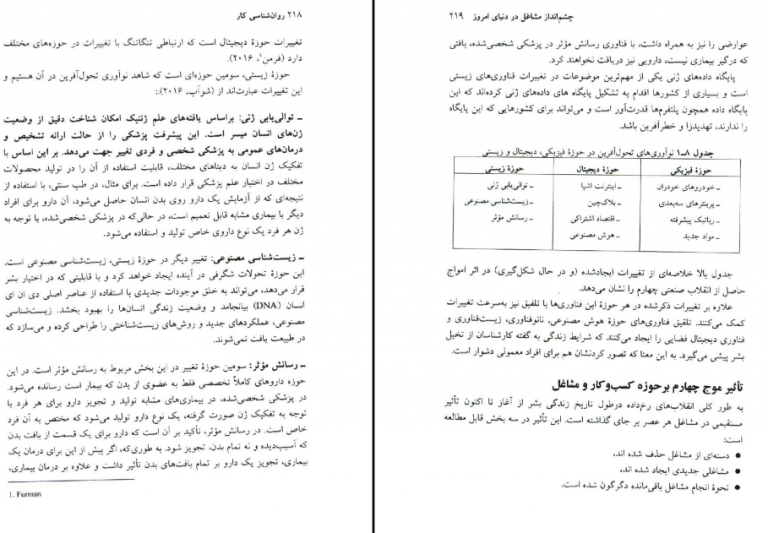 ۲۱۸ روان‌شناسی کار
تغییرات حوزهٔ دیجیتال است که ارتباطی تنگاتنگ با تغییرات در حوزه‌های مختلف
دارد (فرمن۱، ۲۰۱۶).
حوزهٔ زیستی، سومین حوزه‌ای است که شاهد نوآوری تحول‌آفرین در آن هستیم و
این تغییرات عبارت‌اند از (شوآب، ۲۰۱۶):
ـ توالی‌یابی ژنی: براساس یافته‌های علم ژنتیک امکان شناخت دقیق از وضعیت
ژن‌های انسان میسر است. این پیشرفت پزشکی را از حالت ارائه تشخیص و
درمان‌های عمومی به پزشکی شخصی و فردی تغییر جهت می‌دهد. بر این اساس با
تفکیک ژن انسان به دیتاهای مختلف، قابلیت استفاده از آن را در تولید محصولات
مختلف در اختیار علم پزشکی قرار داده است. برای مثال، در طب سنتی، با استفاده از
نتیجه‌ای که از آزمایش یک دارو روی بدن انسان حاصل می‌شود، آن دارو برای افراد
دیگر با بیماری مشابه قابل تعمیم است، در حالی‌که در پزشکی شخصی‌شده، با توجه به
ژن هر فرد یک نوع داروی خاص تولید و استفاده می‌شود.
ـ زیست‌شناسی مصنوعی: تغییر دیگر در حوزهٔ زیستی، زیست‌شناسی مصنوعی است.
این حوزه تحولات شگرفی در آینده ایجاد خواهد کرد و با قابلیتی که در اختیار بشر
قرار می‌دهد، می‌تواند به خلق موجودات جدیدی با استفاده از عناصر اصلی دی ان ای
انسان (DNA) بیانجامد و وضعیت زندگی انسان‌ها را بهبود بخشد. زیست‌شناسی
مصنوعی، عملکردهای جدید و روش‌های زیست‌شناختی را طراحی کرده و می‌سازد که
در طبیعت یافت نمی‌شوند.
ـ رسانش مؤثر: سومین حوزهٔ تغییر در این بخش مربوط به رسانش مؤثر است. در این
حوزه داروهای کاملاً تخصصی فقط به عضوی از بدن که بیمار است رسانده می‌شود.
در پزشکی شخصی‌شده، در بیماری‌های مشابه تولید و تجویز دارو برای هر فرد با
توجه به تفکیک ژن صورت گرفته، یک نوع دارو تولید می‌شود که مختص به آن فرد
خاص است. در رسانش مؤثر، تأکید بر آن است که دارو برای یک قسمت از بافت بدن
که آسیب‌دیده و نه تمام بدن، تجویز شود. به طوری‌که، اگر پیش از این برای درمان یک
بیماری، تجویز یک دارو بر تمام بافت‌های بدن تأثیر داشت و علاوه بر درمان بیماری،
1. Furman
چشم‌انداز مشاغل در دنیای امروز ۲۱۹
عوارضی را نیز به همراه داشت، با فناوری رسانش مؤثر در پزشکی شخصی‌شده، بافتی
که درگیر بیماری نیست، دارویی نیز دریافت نخواهند کرد.
پایگاه داده‌های ژنی یکی از مهم‌ترین موضوعات در تغییرات فناوری‌های زیستی
است و بسیاری از کشورها اقدام به تشکیل پایگاه های داده‌های ژنی کرده‌اند که این
پایگاه داده همچون پلتفرم‌ها قدرت‌آور است و می‌تواند برای کشورهایی که این پایگاه
را ندارند، تهدیدزا و خطرآفرین باشد.
جدول ۸ـ۱ نوآوری‌های تحول‌آفرین در حوزهٔ فیزیکی، دیجیتال و زیستی
حوزهٔ فیزیکی حوزهٔ دیجیتال حوزهٔ زیستی
ـ خودروهای خودران ـ اینترنت اشیا ـ توالی‌یابی ژنی
ـ پرینترهای سه‌بعدی ـ بلاک‌چین ـ زیست‌شناسی مصنوعی
ـ رباتیک پیشرفته ـ اقتصاد اشتراکی ـ رسانش مؤثر
ـ مواد جدید ـ هوش مصنوعی
جدول بالا خلاصه‌ای از تغییرات ایجادشده (و در حال شکل‌گیری) در اثر امواج
حاصل از انقلاب صنعتی چهارم را نشان می‌دهد.
علاوه بر تغییرات ذکرشده در هر حوزهٔ این فناوری‌ها با تلفیق نیز به‌سرعت تغییرات
کمک می‌کنند. تلفیق فناوری‌های حوزهٔ هوش مصنوعی، نانوفناوری، زیست‌فناوری و
فناوری دیجیتال فضایی را ایجاد می‌کنند که شرایط زندگی به گفته کارشناسان از تخیل
بشر پیشی می‌گیرد. به این معنا که تصور کردنشان هم برای افراد معمولی دشوار است.
تأثیر موج چهارم برحوزه کسب‌وکار و مشاغل
به طور کلی انقلاب‌های رخ‌داده درطول تاریخ زندگی بشر از آغاز تا اکنون تأثیر
مستقیمی در مشاغل هر عصر بر جای گذاشته است. این تأثیر در سه بخش قابل مطالعه
است:
● دسته‌ای از مشاغل حذف شده اند،
● مشاغلی جدیدی ایجاد شده اند،
● نحوهٔ انجام مشاغل باقی‌مانده دگرگون شده است.